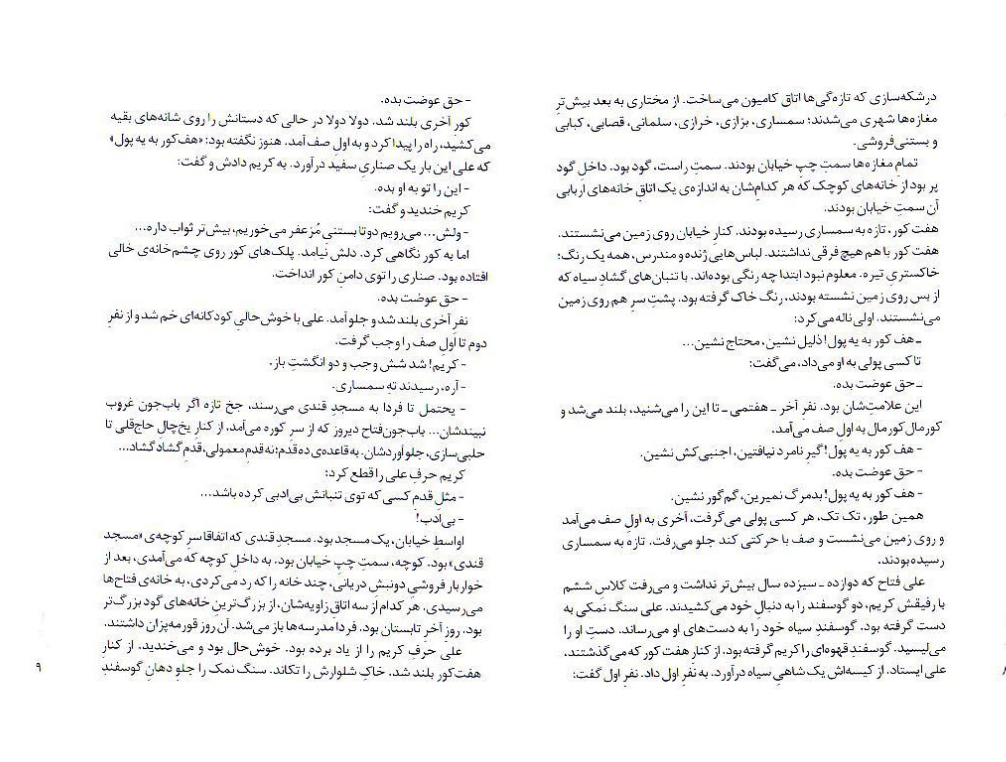 درشکه‌سازی که تازه‌گی‌ها اتاق کامیون می‌ساخت. از مختاری به بعد بیش‌ترِ
مغازه‌ها شهری می‌شدند؛ سمساری، بزازی، خرازی، سلمانی، قصابی، کبابی
و بستنی‌فروشی.
تمامِ مغازه‌ها سمتِ چپِ خیابان بودند. سمتِ راست، گود بود. داخلِ گود
پر بود از خانه‌های کوچک که هر کدام‌شان به اندازه‌ی یک اتاقِ خانه‌های اربابی
آن سمتِ خیابان بودند.
هفت کور، تازه به سمساری رسیده بودند. کنارِ خیابان روی زمین می‌نشستند.
هفت کور با هم هیچ فرقی نداشتند. لباس‌هایی ژنده و مندرس، همه یک رنگ؛
خاکستریِ تیره. معلوم نبود ابتدا چه رنگی بوده‌اند. با تنبان‌های گشادِ سیاه که
از بس روی زمین نشسته بودند، رنگ خاک گرفته بود. پشتِ سرِ هم روی زمین
می‌نشستند. اولی ناله می‌کرد:
ـ هف کور به یه پول! ذلیل نشین، محتاج نشین...
تا کسی پولی به او می‌داد، می‌گفت:
ـ حق عوضت بده.
این علامت‌شان بود. نفرِ آخر ـ هفتمی ـ تا این را می‌شنید، بلند می‌شد و
کورمال کورمال به اولِ صف می‌آمد.
- هف کور به یه پول! گیرِ نامرد نیافتین، اجنبی‌کش نشین.
- حق عوضت بده.
- هف کور به یه پول! بدمرگ نمیرین، گم‌گور نشین.
همین طور، تک تک، هر کسی پولی می‌گرفت، آخری به اولِ صف می‌آمد
و روی زمین می‌نشست و صف با حرکتی کند جلو می‌رفت. تازه به سمساری
رسیده بودند.
علی فتاح که دوازده ـ سیزده سال بیش‌تر نداشت و می‌رفت کلاسِ ششم
با رفیقش کریم، دو گوسفند را به دنبالِ خود می‌کشیدند. علی سنگ نمکی به
دست گرفته بود. گوسفندِ سیاه خود را به دست‌های او می‌رساند. دستِ او را
می‌لیسید. گوسفندِ قهوه‌ای را کریم گرفته بود. از کنارِ هفت کور که می‌گذشتند،
علی ایستاد. از کیسه‌اش یک شاهیِ سیاه درآورد. به نفرِ اول داد. نفرِ اول گفت:
- حق عوضت بده.
کورِ آخری بلند شد. دولا دولا در حالی که دستانش را روی شانه‌های بقیه
می‌کشید، راه را پیدا کرد و به اولِ صف آمد. هنوز نگفته بود: «هف‌کور به یه پول»
که علی این بار یک صناریِ سفید درآورد. به کریم دادش و گفت:
- این را تو به او بده.
کریم خندید و گفت:
-ولش... می‌رویم دو‌تا بستنیِ مُزعفر می‌خوریم، بیش‌تر ثواب داره...
اما به کور نگاهی کرد. دلش نیامد. پلک‌های کور روی چشم‌خانه‌ی خالی
افتاده بود. صناری را توی دامنِ کور انداخت.
- حق عوضت بده.
نفرِ آخری بلند شد و جلو آمد. علی با خوش‌حالیِ کودکانه‌ای خم شد و از نفرِ
دوم تا اولِ صف را وجب گرفت.
- کریم! شد شش وجب و دو انگشتِ باز.
- آره، رسیدند تهِ سمساری.
- یحتمل تا فردا به مسجدِ قندی می‌رسند، جخ تازه اگر باب‌جون غروب
نبیندشان... باب‌جون‌فتاح دیروز که از سرِ کوره می‌آمد، از کنارِ یخ‌چالِ حاج‌قلی تا
حلبی‌سازی، جلو آوردشان. به قاعده‌ی ده قدم؛ نه قدمِ معمولی، قدمِ گشاد گشاد...
کریم حرفِ علی را قطع کرد:
- مثلِ قدم کسی که توی تنبانش بی‌ادبی کرده باشد...
- بی‌ادب!
اواسطِ خیابان، یک مسجد بود. مسجدِ قندی که اتفاقا سرِ کوچه‌ی «مسجد
قندی» بود. کوچه، سمتِ چپِ خیابان بود. به داخلِ کوچه که می‌آمدی، بعد از
خواربار فروشیِ دونبشِ دریانی، چند خانه را که رد می‌کردی، به خانه‌ی فتاح‌ها
می‌رسیدی. هر کدام از سه اتاقِ زاویه‌شان، از بزرگ‌ترینِ خانه‌های گود بزرگ‌تر
بود. روزِ آخرِ تابستان بود. فردا مدرسه‌ها باز می‌شد. آن روز قورمه‌پزان داشتند.
علی حرفِ کریم را از یاد برده بود. خوش‌حال بود و می‌خندید. از کنارِ
هفت‌کور بلند شد. خاکِ شلوارش را تکاند. سنگ نمک را جلوِ دهانِ گوسفندِ
۹